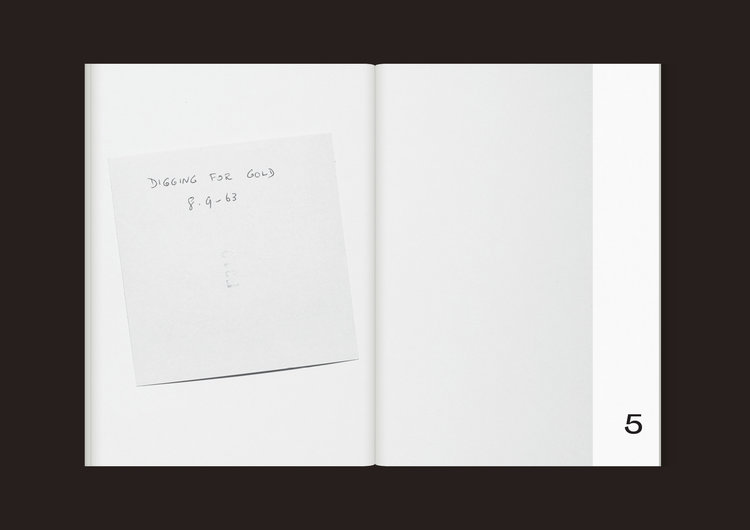 DIGGING FOR GOLD
8.9-63
5